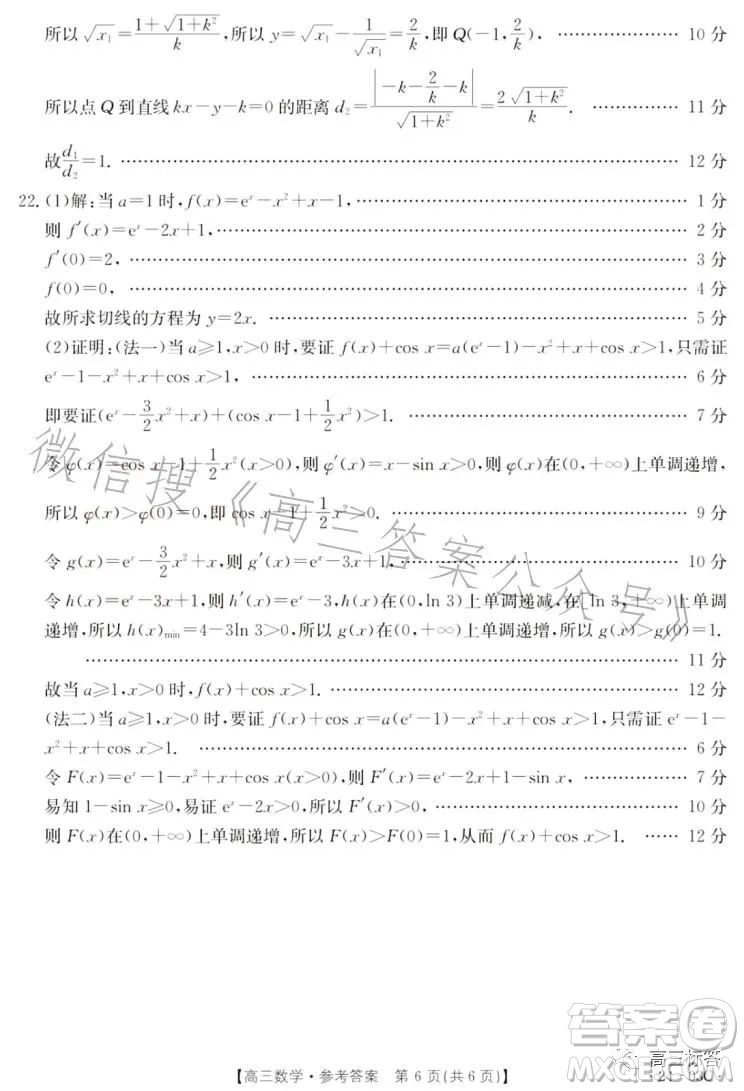 所以√x₁=(1+√(1+k²))/k,所以 y=√x₁-1/√x₁=2/k,即 Q(-1,2/k), …… 10 分
所以点 Q 到直线 kx-y-k=0 的距离 d₂=|-k-2/k-k|/√(1+k²)=2√(1+k²)/k. …… 11 分
故d₁/d₂=1. …… 12 分
22.(1)解:当 a=1 时,f(x)=eˣ-x²+x-1, …… 1 分
则 f′(x)=eˣ-2x+1, …… 2 分
f′(0)=2, …… 3 分
f(0)=0, …… 4 分
故所求切线的方程为 y=2x. …… 5 分
(2)证明:(法一)当 a≥1,x>0 时,要证 f(x)+cos x=a(eˣ-1)-x²+x+cos x>1,只需证
eˣ-1-x²+x+cos x>1, …… 6 分
即要证(eˣ-3/2x²+x)+(cos x-1+1/2x²)>1. …… 7 分
令 φ(x)=cos x-1+1/2x²(x>0),则 φ′(x)=x-sin x>0,则 φ(x)在(0,+∞)上单调递增,
所以 φ(x)>φ(0)=0,即 cos x-1+1/2x²>0. …… 9 分
令 g(x)=eˣ-3/2x²+x,则 g′(x)=eˣ-3x+1, …… 10 分
令 h(x)=eˣ-3x+1,则 h′(x)=eˣ-3,h(x)在(0,ln 3)上单调递减,在(ln 3,+∞)上单调
递增,所以 h(x)min=4-3ln 3>0,所以 g(x)在(0,+∞)上单调递增,所以 g(x)>g(0)=1.
…… 11 分
故当 a≥1,x>0 时,f(x)+cos x>1. …… 12 分
(法二)当 a≥1,x>0 时,要证 f(x)+cos x=a(eˣ-1)-x²+x+cos x>1,只需证 eˣ-1-
x²+x+cos x>1. …… 6 分
令 F(x)=eˣ-1-x²+x+cos x(x>0),则 F′(x)=eˣ-2x+1-sin x, …… 7 分
易知 1-sin x≥0,易证 eˣ-2x>0,所以 F′(x)>0, …… 10 分
则 F(x)在(0,+∞)上单调递增,所以 F(x)>F(0)=1,从而 f(x)+cos x>1. …… 12 分
微信搜《高三答案公众号》
答案卷
高三标答
MXQE.COM
【高三数学·参考答案 第 6 页(共 6 页)】